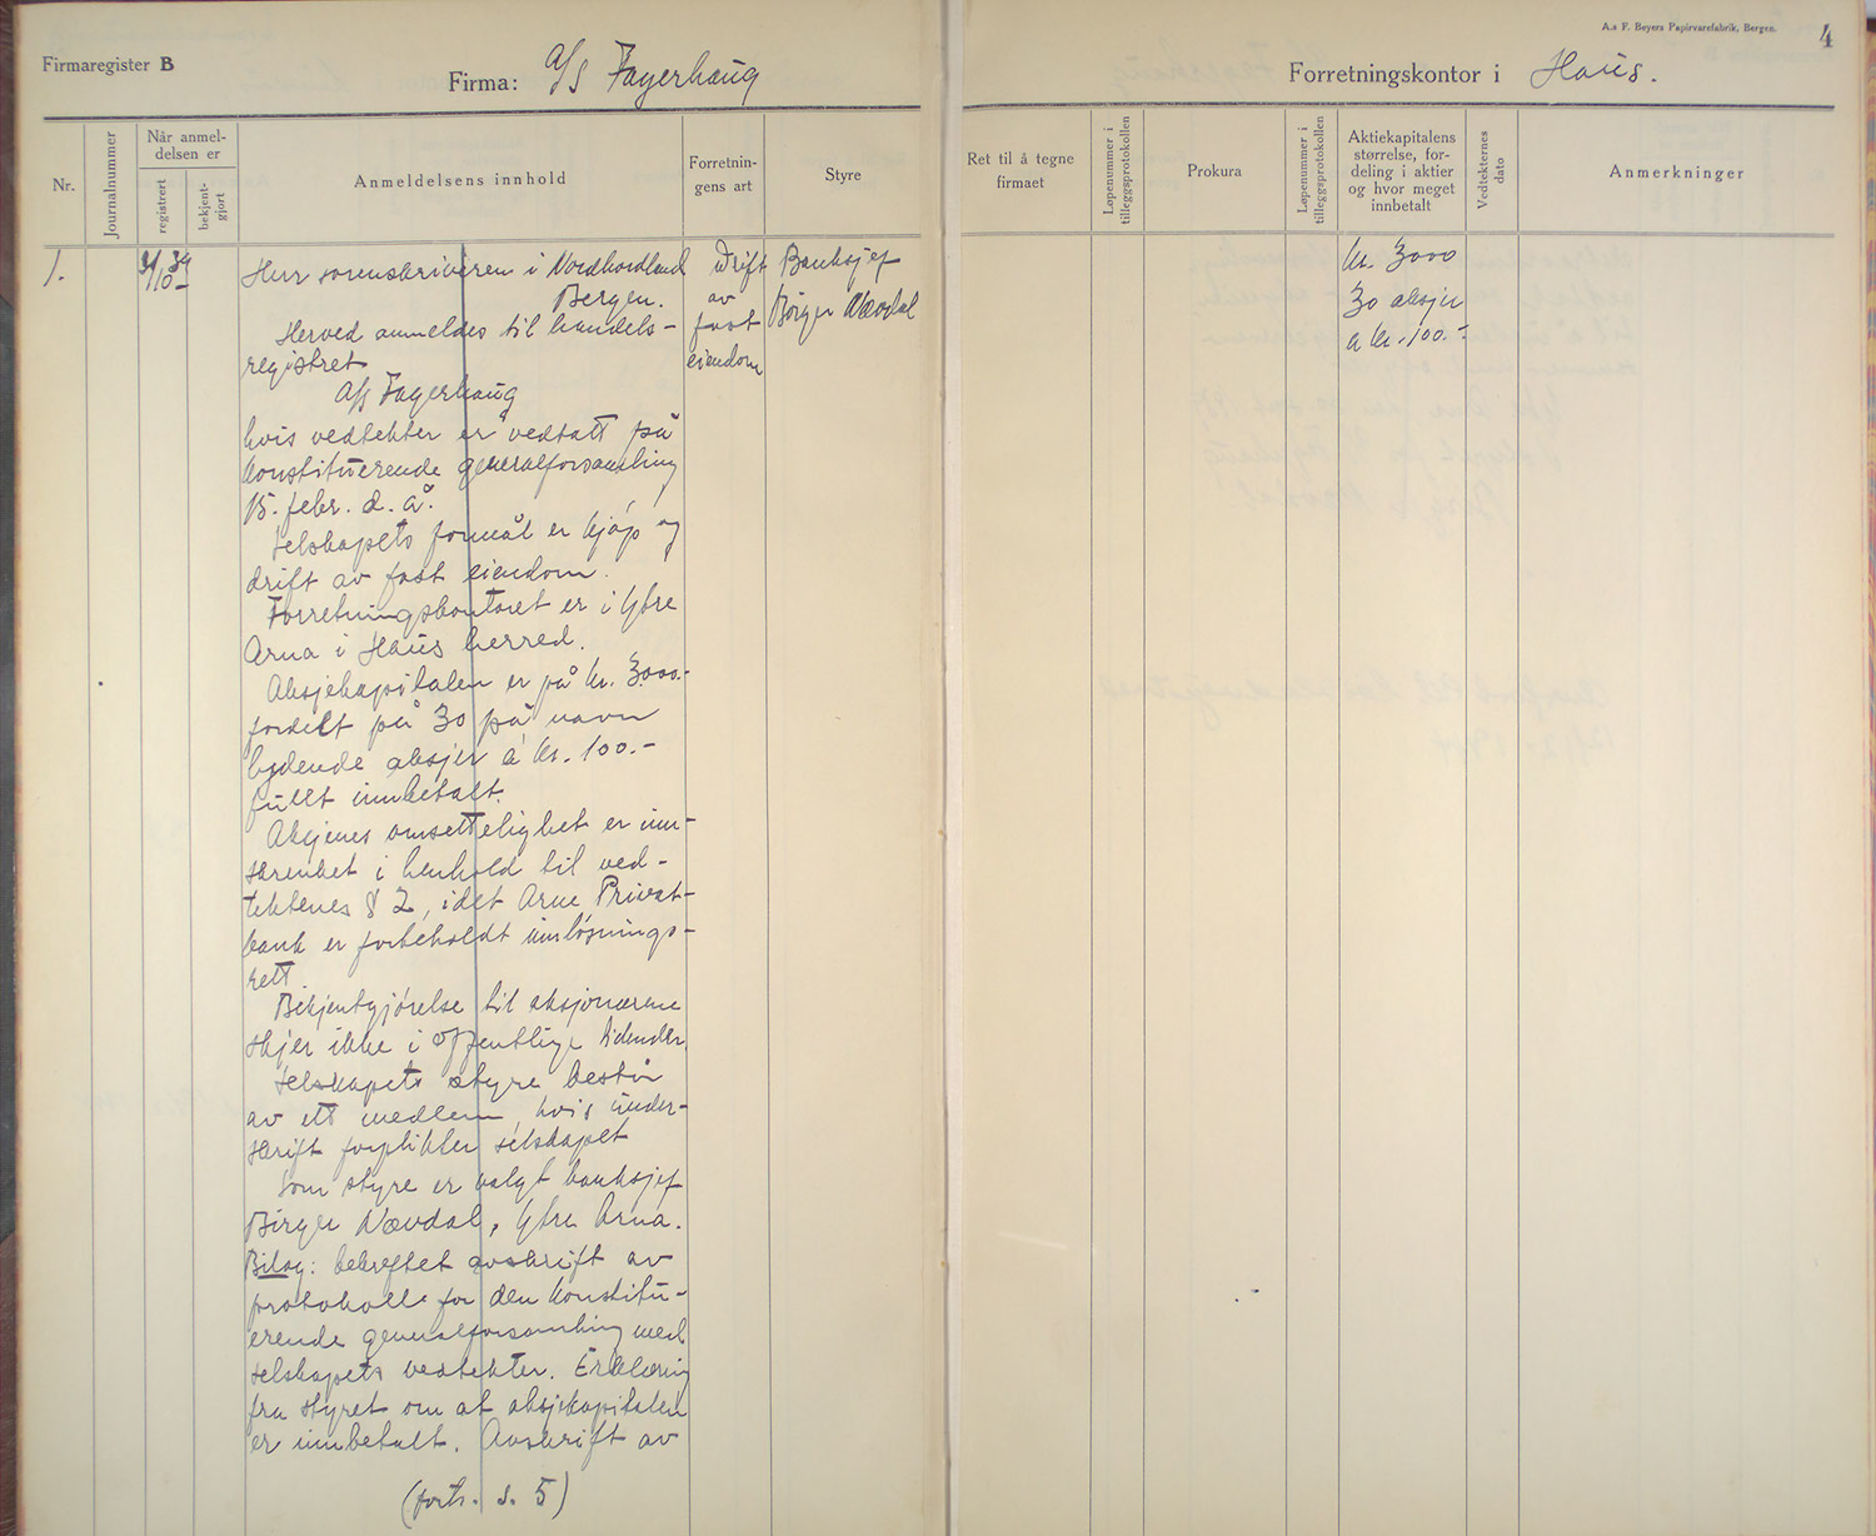 A.s F. Beyers Papirvarefabrik, Bergen.
4
Firmaregister B
Firma: A/S Fagerhaug
Forretningskontor i Haus.
Nr.
Journalnummer
Når anmel-
delsen er
registrert
bekjent-
gjort
Anmeldelsens innhold
Forretnin-
gens art
Styre
Ret til å tegne
firmaet
Løpenummer i
tilleggsprotokollen
Prokura
Løpenummer i
tilleggsprotokollen
Aktiekapitalens
størrelse, for-
deling i aktier
og hvor meget
innbetalt
Vedtekternes
dato
Anmerkninger
1.
/10 34
Herr sorenskriveren i Nordhordland
Bergen.
Herved anmeldes til handels-
registret
A/S Fagerhaug
hvis vedtekter er vedtatt på
konstituerende generalforsamling
15. febr. d. å.
Selskapets formål er kjøp og
drift av fast eiendom.
Forretningskontoret er i Ytre
Arna i Haus herred.
Aksjekapitalen er på kr. 3000.-
fordelt på 30 på navn
lydende aksjer á kr. 100.-
fullt innbetalt.
Aksjenes omsettelighet er inn-
skrenket i henhold til ved-
tektenes § 2, idet Arne Privat-
bank er forbeholdt innløsnings-
rett.
Bekjentgjørelse til aksjonærene
skjer ikke i offentlige tidender.
Selskapets styre består
av ett medlem, hvis under-
skrift forplikter selskapet
Som styre er valgt banksjef
Birger Nævdal, Ytre Arna.
Bilag: bekreftet avskrift av
protokoll for den konstitu-
erende generalforsamling med
selskapets vedtekter. Erklæring
fra styret om at aksjekapitalen
er innbetalt. Avskrift av
(forts. s. 5)
Drift
av
fast
eiendom
Banksjef
Birger Nævdal
kr. 3000
30 aksjer
a kr. 100.-